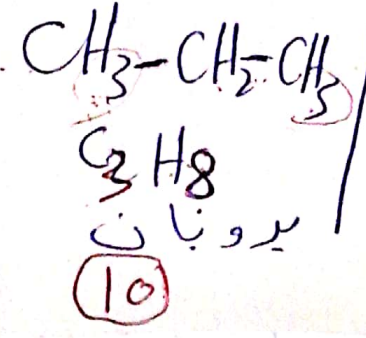 CH₃-CH₂-CH₃
C₃H₈
بروبان
10